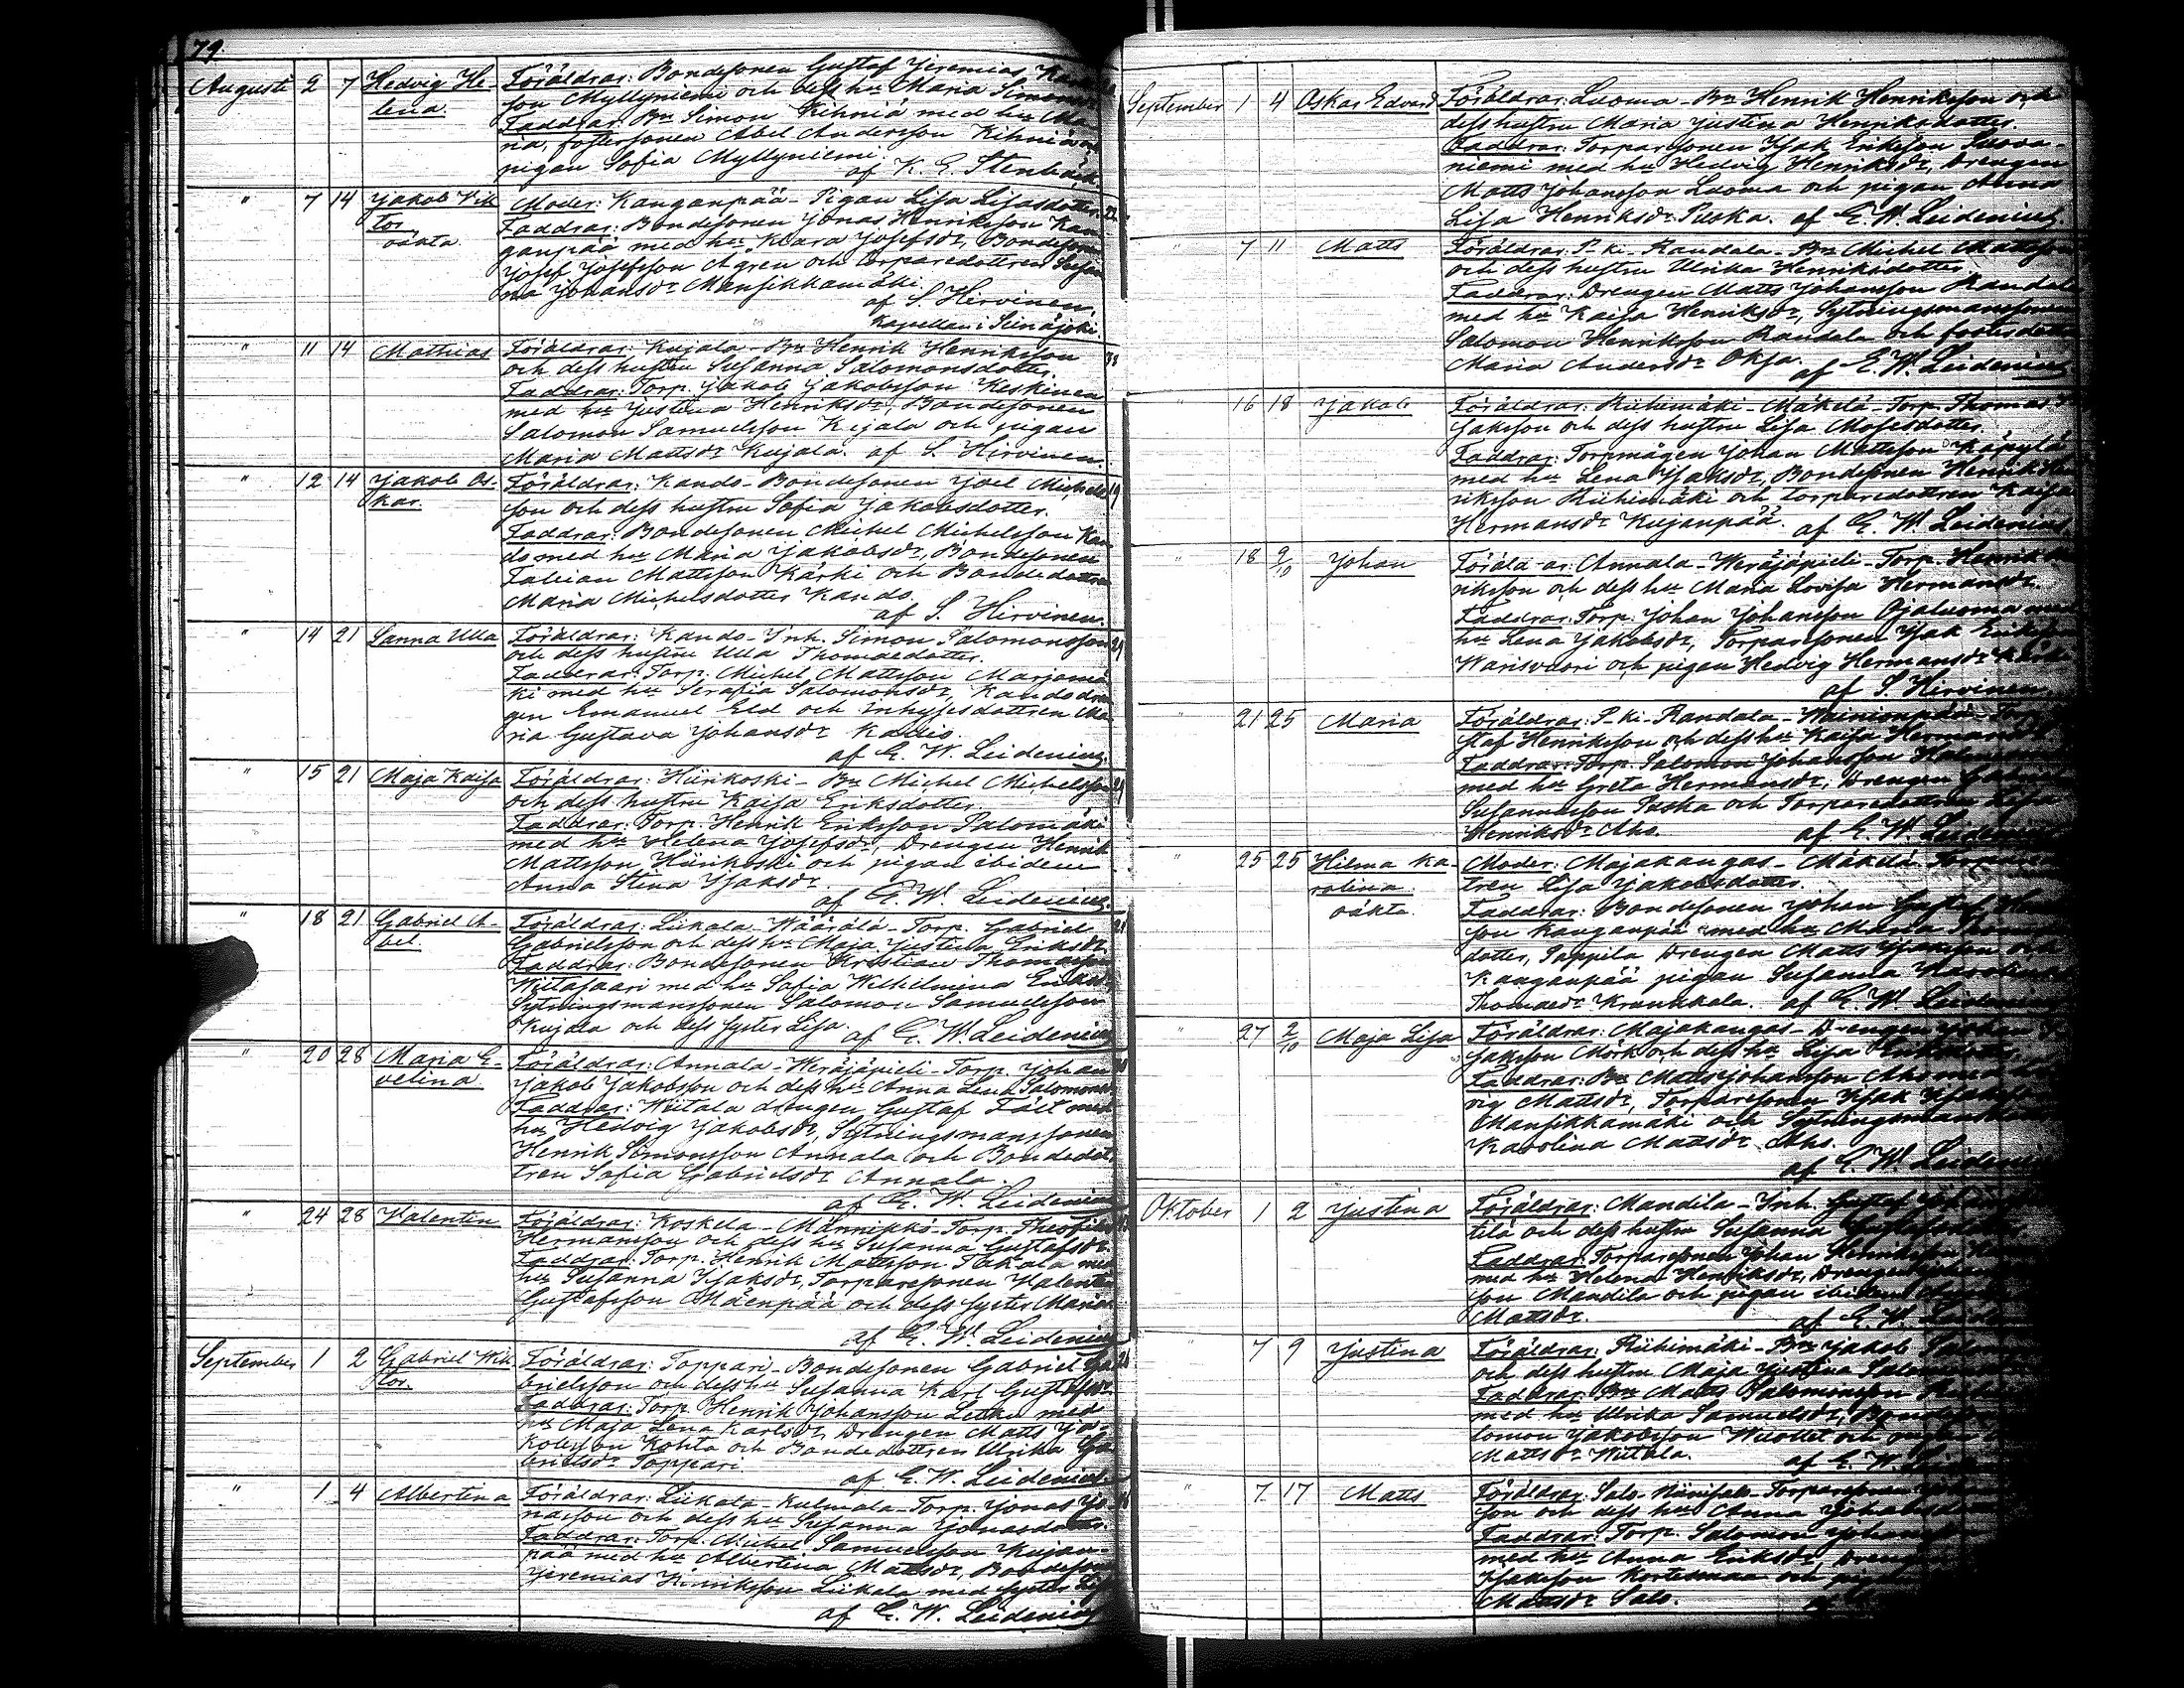 79.
Augusti 2 7 Hedvig He- Föräldrar: Bondesonen Gustaf Jeremias
lena. son Myllyniemi och dess hu Maria Simonsdr
Faddrar: Bn Simon Kihniä med hu Ma-
ria, fostersonen Abel Andersson Kihniä och
pigan Sofia Myllyniemi.
af K. E. Stenbäck.
" 7 14 Jakob Vik Moder: Kanganpää - Pigan Lisa Lisasdotter
tor Faddrar: Bondesonen Jonas Henriksson Kan
oäkta. ganpää med hu Klara Josefsdr, Bondesonen
Josef Josefsson Ågren och torparedottren Susan
na Johansdr Mansikkamäki.
af S. Hirvinen,
Kapellan i Seinäjoki.
" 11 14 Mathias Föräldrar: Kujala - Bn Henrik Henriksson
och dess hustru Susanna Salomonsdotter.
Faddrar: Torp. Jakob Jakobsson Keskinen
med hu Justina Henriksdr, Bondesonen
Salomon Samuelsson Kujala och pigan
Maria Mattsdr Kujala. af S. Hirvinen.
" 12 14 Jakob Os- Föräldrar: Kando - Bondesonen Joel Michels
kar. son och dess hustru Sofia Jakobsdotter.
Faddrar: Bondesonen Michel Michelsson Kan
do med hu Maria Jakobsdr, Bondesonen
Fabian Mattsson Kärki och Bondedottren
Maria Michelsdotter Kando.
af S. Hirvinen.
" 14 21 Sanna Ulla Föräldrar: Kando - Inh. Simon Salomonsson
och dess hustru Ulla Thomasdotter.
Faddrar: Torp. Michel Mattsson Marjamä
ki med hu Serafia Salomonsdr, Kando dren
gen Emanuel Eld och inhysesdottren Ma
ria Gustava Johansdr Kallio.
af E. W. Leidenius.
" 15 21 Maja Kaisa Föräldrar: Hiirikoski - Bn Michel Michelsson
och dess hustru Kaisa Eriksdotter.
Faddrar: Torp. Henrik Eriksson Palomäki
med hu Helena Josefsdr, Drengen Henrik
Mattsson Hiirikoski och pigan ibidem
Anna Stina Isaksdr.
af E. W. Leidenius.
" 18 21 Gabriel A- Föräldrar: Liikala - Wäärälä - Torp. Gabriel
bel. Gabrielsson och dess hu Maja Justina Eriksdr
Faddrar: Bondesonen Kristian Thomasson
Wiitasaari med hu Sofia Wilhelmina Eriksdr
Sytningsmanssonen Salomon Samuelsson
Kujala och dess syster Lisa.
af E. W. Leidenius
" 20 28 Maria E- Föräldrar: Annala - Weräjäpieli - Torp. Johan
velina. Jakob Jakobsson och dess hu Anna Lena Salomonsdr
Faddrar: Wiitala drengen Gustaf Fält med
hu Hedvig Jakobsdr, Sytningsmanssonen
Henrik Simonsson Annala och Bondedot
tren Sofia Gabrielsdr Annala.
af E. W. Leidenius
" 24 28 Valentin Föräldrar: Koskela - Männikkö - Torp. Theofilus
Hermansson och dess hu Susanna Gustafsdr.
Faddrar: Torp. Henrik Mattsson Takala med
hu Susanna Isaksdr, Torparesonen Valentin
Gustafsson Mäenpää och dess syster Maria
af E. W. Leidenius
September 1 2 Gabriel Wik Föräldrar: Toppari - Bondesonen Gabriel Ga
tor. brielsson och dess hu Susanna Karl Gustafsdr.
Faddrar: Torp. Henrik Johansson Letku med
hu Maja Lena Karlsdr, Drengen Matts Ja
kobsson Kohta och Bondedottren Ulrika Ga
brielsdr Toppari.
af E. W. Leidenius.
" 1 4 Albertina Föräldrar: Liikala - Kulmala - Torp. Jonas Jo
nasson och dess hu Susanna Jonasdotter.
Faddrar: Torp. Michel Samuelsson Kujan-
pää med hu Albertina Mattsdr, Bondeson
Jeremias Henriksson Liikala med syster Lisa
af E. W. Leidenius
September 1 4 Oskar Edvard Föräldrar: Luoma - Bn Henrik Henriksson och
dess hustru Maria Justina Henriksdotter.
Faddrar: Torparesonen Isak Eriksson Luova-
niemi med hu Hedvig Henriksdr, Drengen
Matts Johansson Luoma och pigan Anna
Lisa Henriksdr Puska. af E. W. Leidenius
" 7 11 Matts Föräldrar: P. ki - Randala - Bn Michel Mattsson
och dess hustru Ulrika Henriksdotter.
Faddrar: Drengen Matts Johansson Randala
med hu Kaisa Henriksdr, Sytningsmanssonen
Salomon Henriksson Randala och fosterdottren
Maria Andersdr Oksa. af E. W. Leidenius
" 16 18 Jakob Föräldrar: Riihimäki - Mäkelä - Torp. Thomas
Isaksson och dess hustru Lisa Mosesdotter.
Faddrar: Torpmågen Johan Mattsson
med hu Lena Isaksdr, Bondesonen Henrik Hen
riksson Riihimäki och torparedottren Kaisa
Hermansdr Kujanpää. af E. W. Leidenius.
" 18 9/10 Johan Föräldrar: Annala - Weräjäpieli - Torp. Henrik Hen
riksson och dess hu Maria Lovisa Hermansdr.
Faddrar: Torp. Johan Johansson Ojaluoma med
hu Lena Jakobsdr, Torparesonen Isak Eriksson
Warisvuori och pigan Hedvig Hermansdr
af S. Hirvinen.
" 21 25 Maria Föräldrar: P. ki - Randala - Wainionpää - Torp.
staf Henriksson och dess hu Kaisa Hermansdr
Faddrar: Torp. Salomon Johansson
med hu Greta Hermansdr, Drengen Gabriel
Susannasson Paska och Torparedottren Lisa
Henriksdr Aho. af E. W. Leidenius
" 25 25 Hilma Ka Moder: Majakangas - Mäkelä
rolina. tren Lisa Jakobsdotter.
oäkta. Faddrar: Bondesonen Johan Gustaf
son Kanganpää med hu Maria
dotter, Pappila Drengen Matts Isaksson
Kanganpää pigan Susanna Karolina
Thomasdr Krannkala. af E. W. Leidenius
" 27 2/10 Maja Lisa Föräldrar: Majakangas - Drengen Johan
Isaksson Mörk och dess hu Lisa
Faddrar: Bn Matts Johansson Aho med
vig Mattsdr, Torparesonen Isak
Mansikkamäki och Sytningsmans
Karolina Mattsdr Aho.
af E. W. Leidenius
Oktober 1 2 Justina Föräldrar: Mandila - Inh. Gustaf
tilä och dess hustru Susanna
Faddrar: Torparesonen Johan Henriksson
med hu Helena Henriksdr, Drengen
son Mandila och pigan ibidem
Mattsdr. af E. W.
" 7 9 Justina Föräldrar: Riihimäki - Bn Jakob
och dess hustru Maja Justina
Faddrar: Bn Matts Salomonsson
med hu Ulrika Samuelsdr,
lomon Jakobsson och
Mattsdr Wiitala. af E. W.
" 7 17 Matts Föräldrar: Salo - - Torparesonen
son och dess hu Anna
Faddrar: Torp. Salomon
med hu Anna Eriksdr, Dreng
Isaksson Kortesmaa och
Mattsdr Salo.